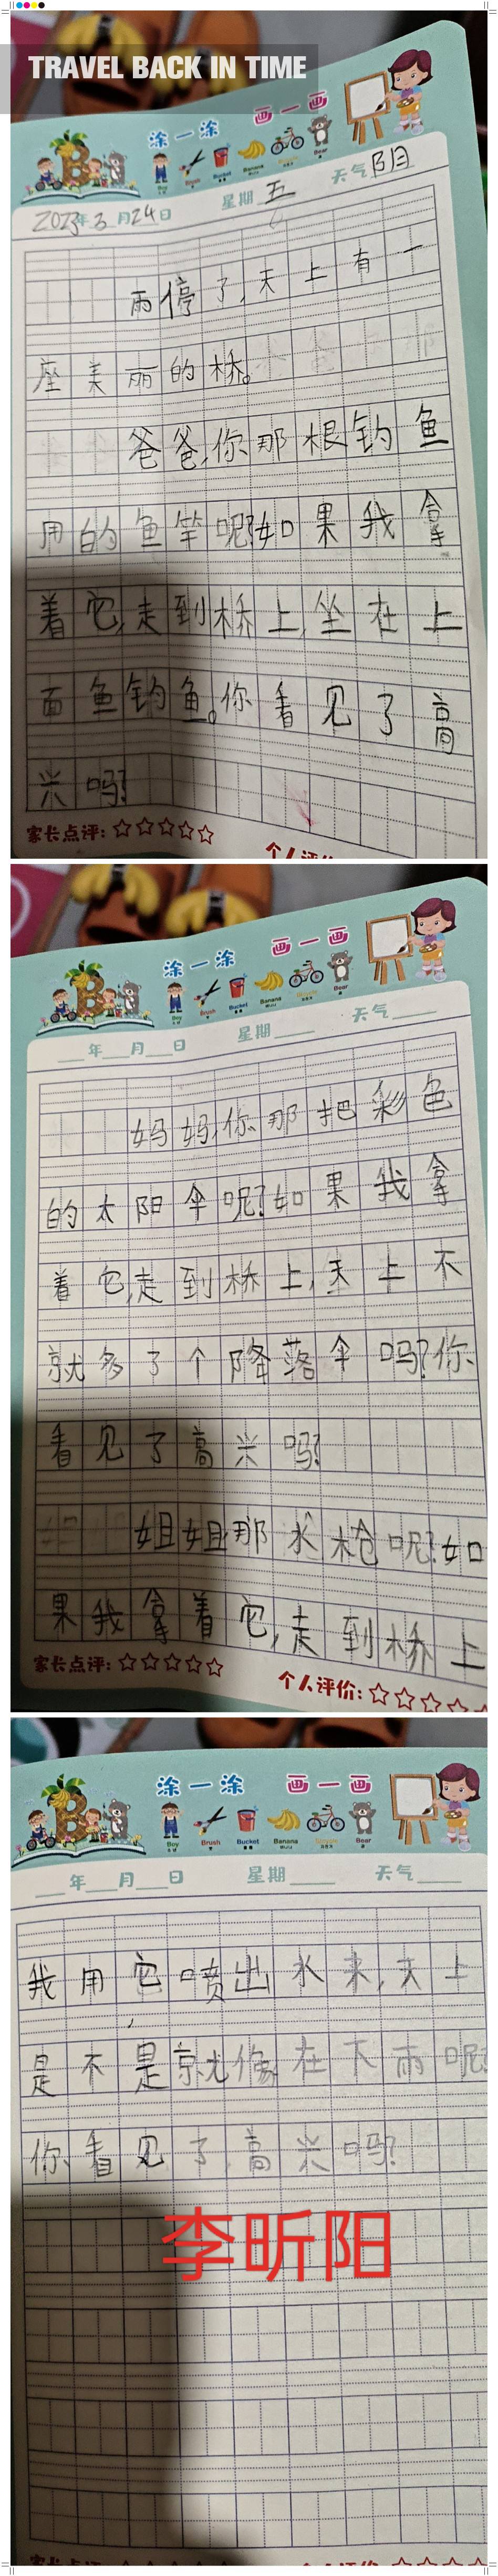 TRAVEL BACK IN TIME
涂一涂 画一画
Boy Brush Bucket Banana Bicycle Bear
2023年3月24日 星期五 天气阴
雨停了,天上有一
座美丽的桥。
爸爸,你那根钓鱼
用的鱼竿呢?如果我拿
着它,走到桥上,坐在上
面鱼钓鱼。你看见了高
兴吗?
家长点评:
个人评价
涂一涂 画一画
Boy Brush Bucket Banana Bicycle Bear
年 月 日 星期 天气
妈妈,你那把彩色
的太阳伞呢?如果我拿
着它,走到桥上,天上不
就多了个降落伞吗?你
看见了高兴吗?
姐姐那水枪呢?如
果我拿着它,走到桥上
家长点评:
个人评价:
涂一涂 画一画
Boy Brush Bucket Banana Bicycle Bear
年 月 日 星期 天气
我用它喷出水来,天上
是不是就像在下雨呢?
你看见了,高兴吗?
李昕阳